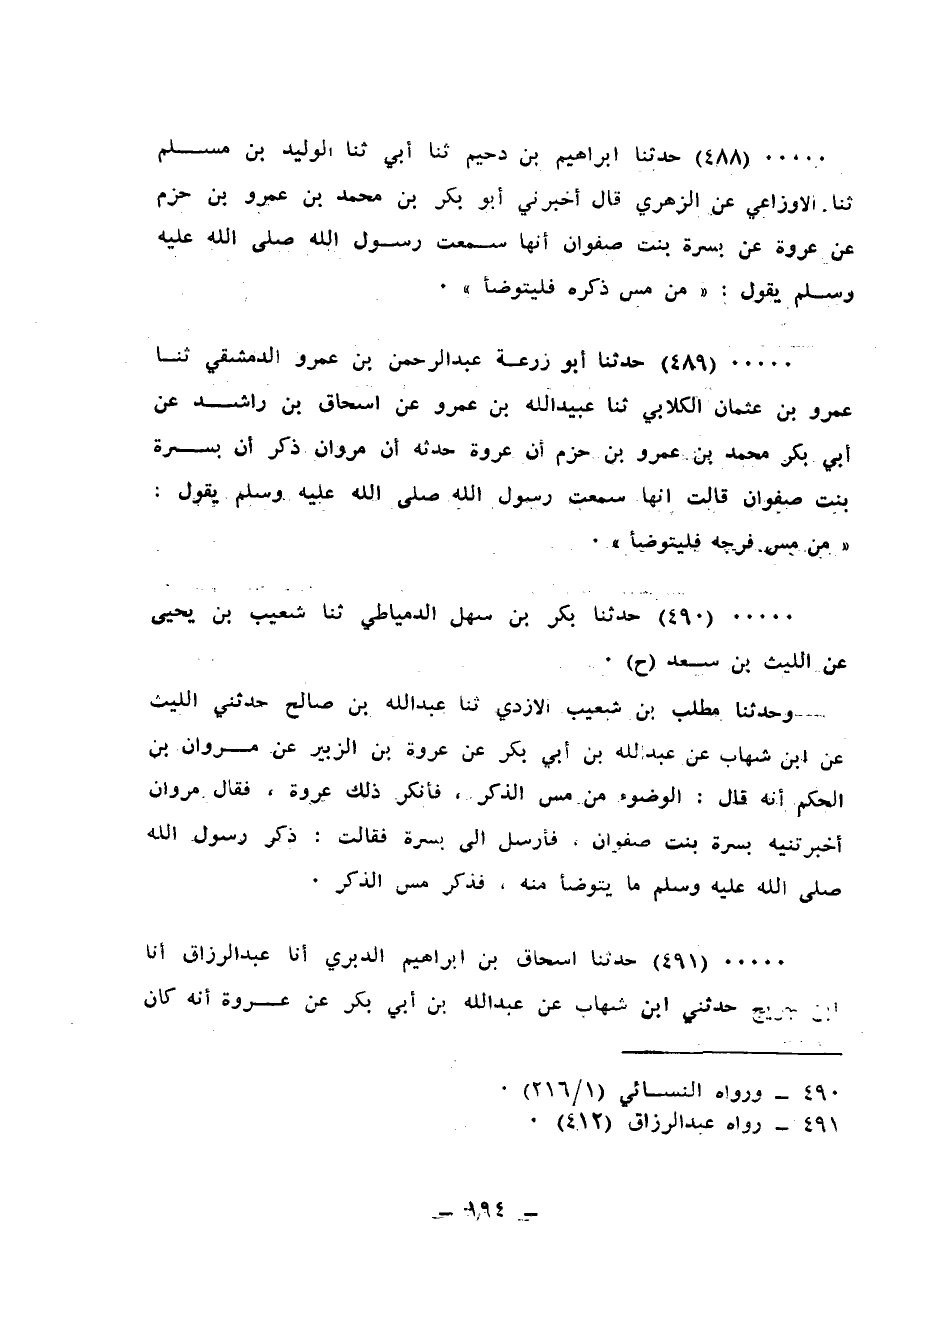 ٠٠٠٠٠ (٤٨٨) حدثنا ابراهيم بن دحيم ثنا أبي ثنا الوليد بن مسلم
ثنا الاوزاعي عن الزهري قال أخبرني أبو بكر بن محمد بن عمرو بن حزم
عن عروة عن بسرة بنت صفوان أنها سمعت رسول الله صلى الله عليه
وسلم يقول : « من مس ذكره فليتوضأ » ٠
٠٠٠٠٠ (٤٨٩) حدثنا أبو زرعة عبدالرحمن بن عمرو الدمشقي ثنا
عمرو بن عثمان الكلابي ثنا عبيدالله بن عمرو عن اسحاق بن راشد عن
أبي بكر محمد بن عمرو بن حزم أن عروة حدثه أن مروان ذكر أن بسرة
بنت صفوان قالت انها سمعت رسول الله صلى الله عليه وسلم يقول :
« من مس فرجه فليتوضأ » ٠
٠٠٠٠٠ (٤٩٠) حدثنا بكر بن سهل الدمياطي ثنا شعيب بن يحيى
عن الليث بن سعد (ح) ٠
وحدثنا مطلب بن شعيب الازدي ثنا عبدالله بن صالح حدثني الليث
عن ابن شهاب عن عبدالله بن أبي بكر عن عروة بن الزبير عن مروان بن
الحكم أنه قال : الوضوء من مس الذكر ، فأنكر ذلك عروة ، فقال مروان
أخبرتنيه بسرة بنت صفوان ، فأرسل الى بسرة فقالت : ذكر رسول الله
صلى الله عليه وسلم ما يتوضأ منه ، فذكر مس الذكر ٠
٠٠٠٠٠ (٤٩١) حدثنا اسحاق بن ابراهيم الدبري أنا عبدالرزاق أنا
ابن جريج حدثني ابن شهاب عن عبدالله بن أبي بكر عن عروة أنه كان
٤٩٠ ـ ورواه النسائي (٢١٦/١) ٠
٤٩١ ـ رواه عبدالرزاق (٤١٢) ٠
ـ ١٩٤ ـ